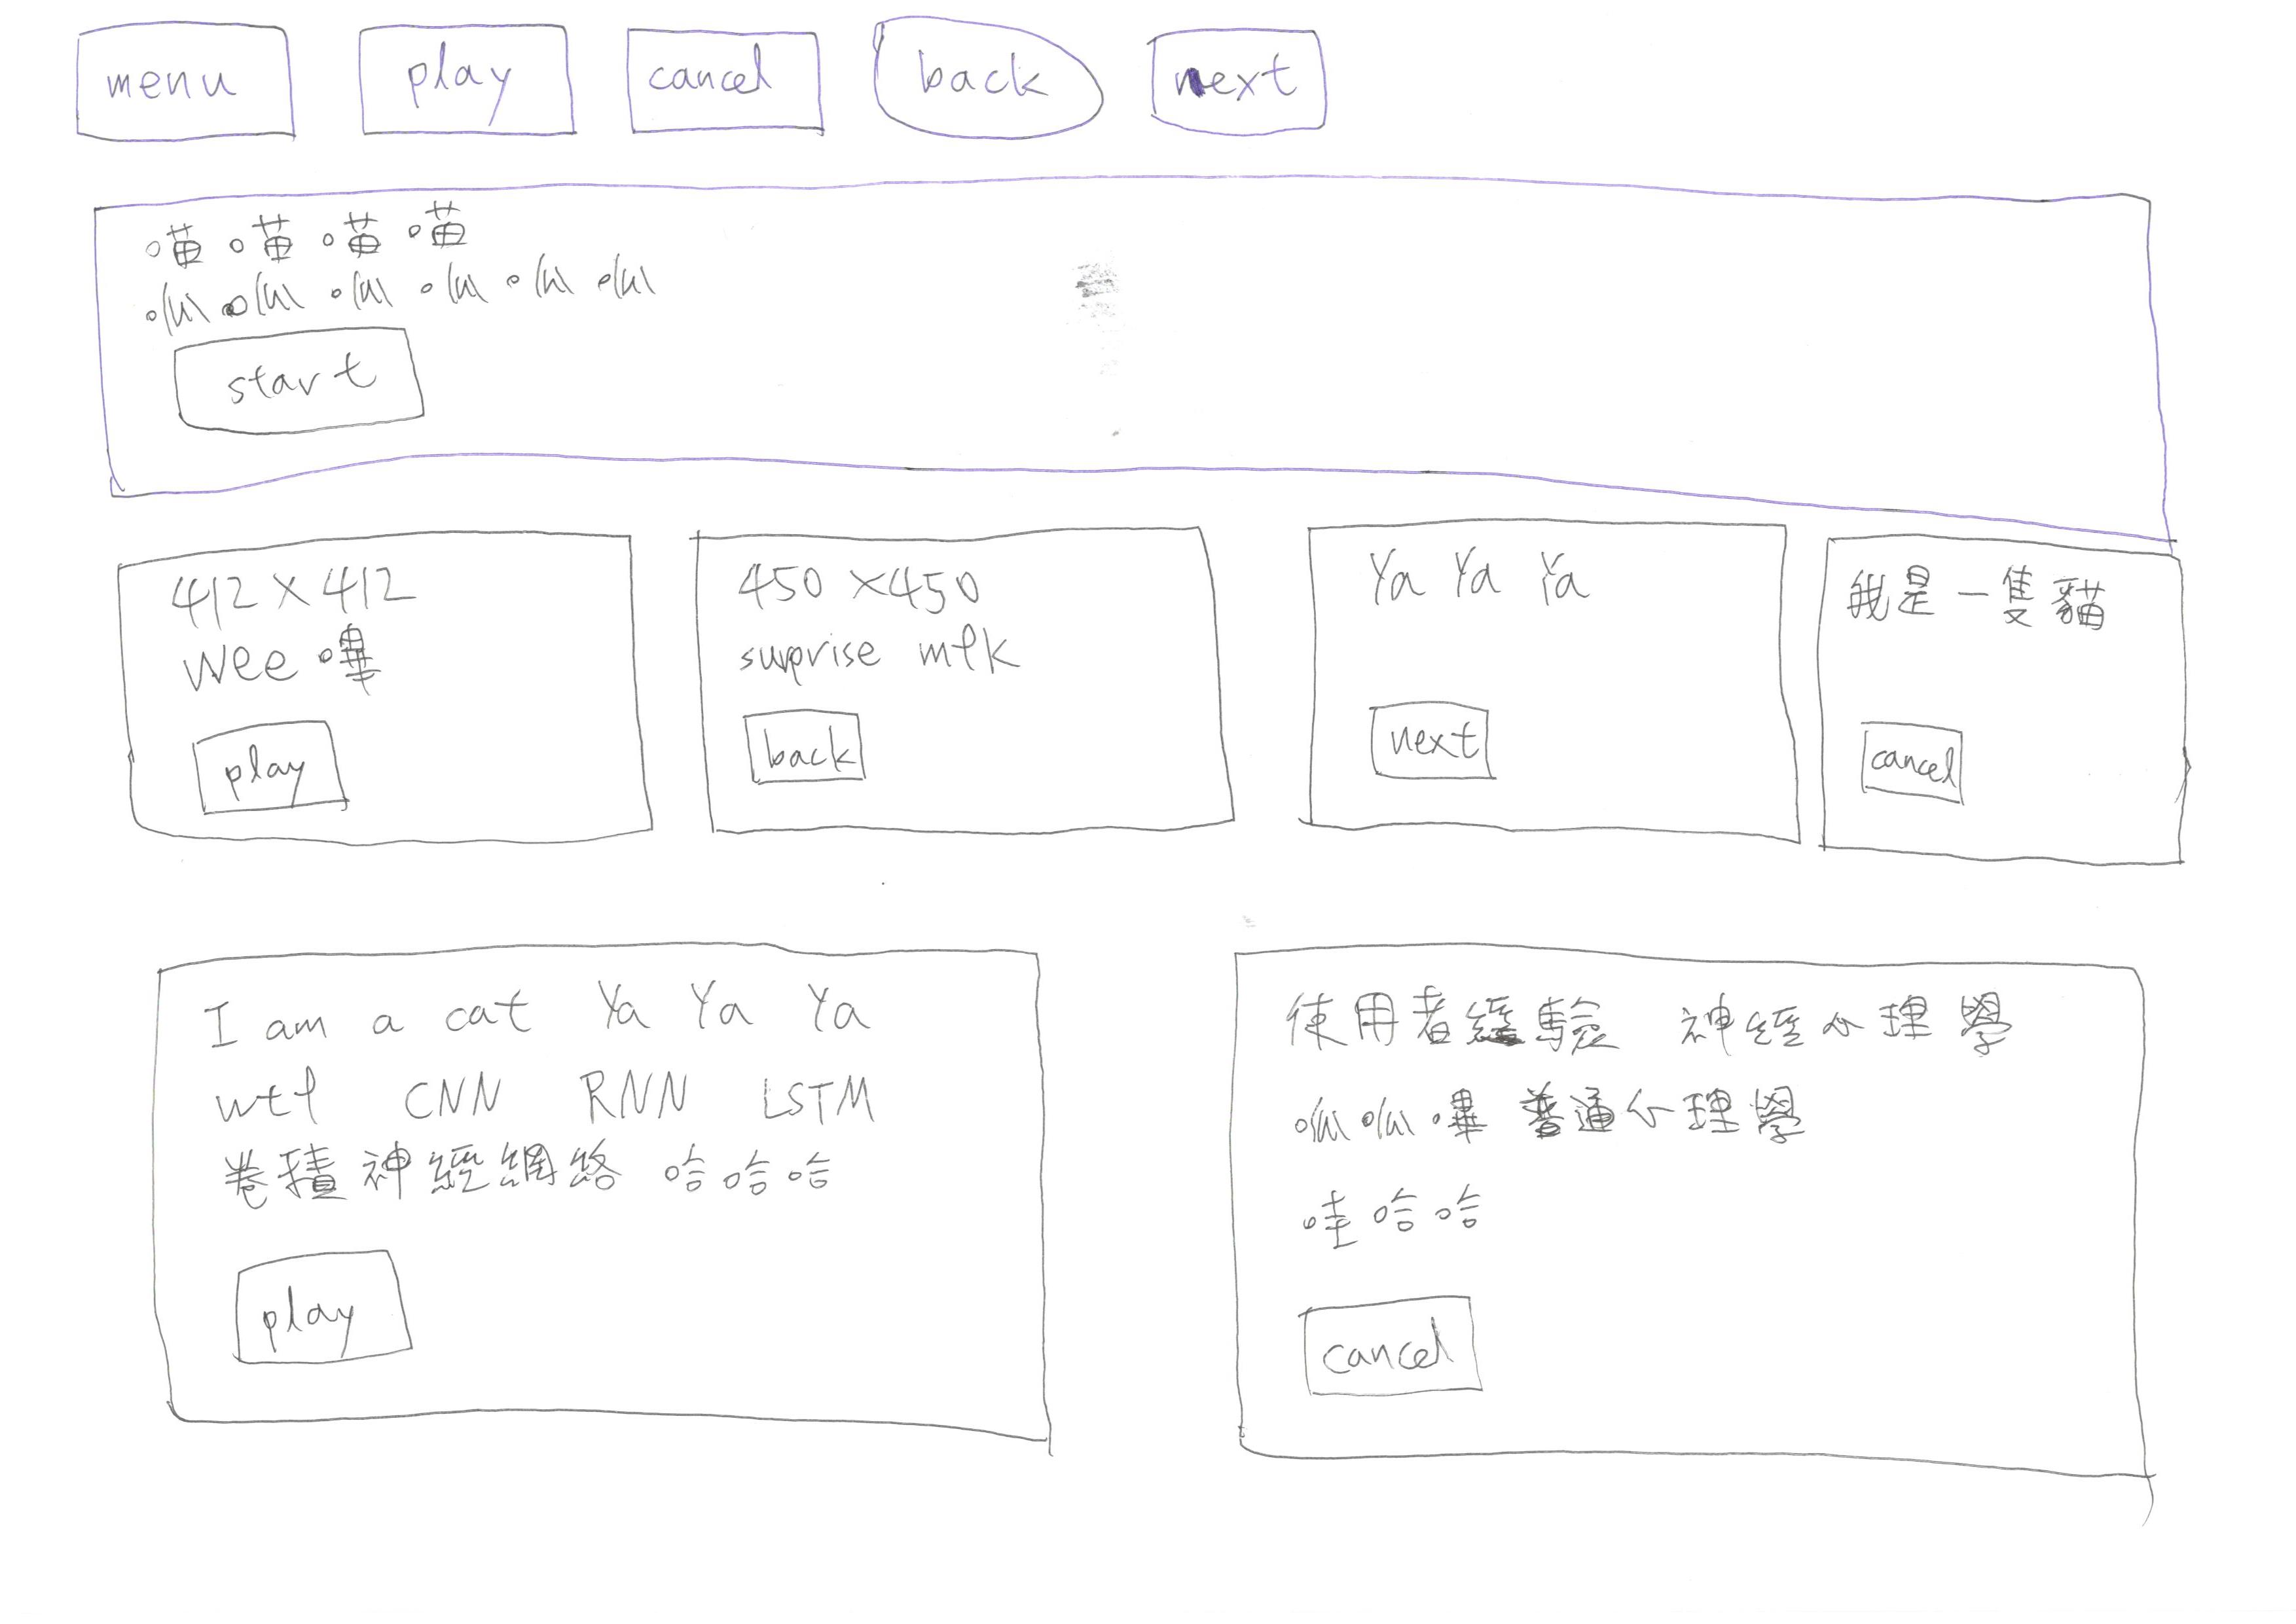 menu play cancel back next
喵喵喵喵
呱呱呱呱呱呱
start
412 × 412
wee 嗶
play
450 × 450
surprise
back
Ya Ya Ya
next
我是一隻貓
cancel
I am a cat Ya Ya Ya
wtf CNN RNN LSTM
卷積神經網路 哈哈哈
play
使用者經驗 神經心理學
呱呱嗶 普通心理學
哇哈哈
cancel